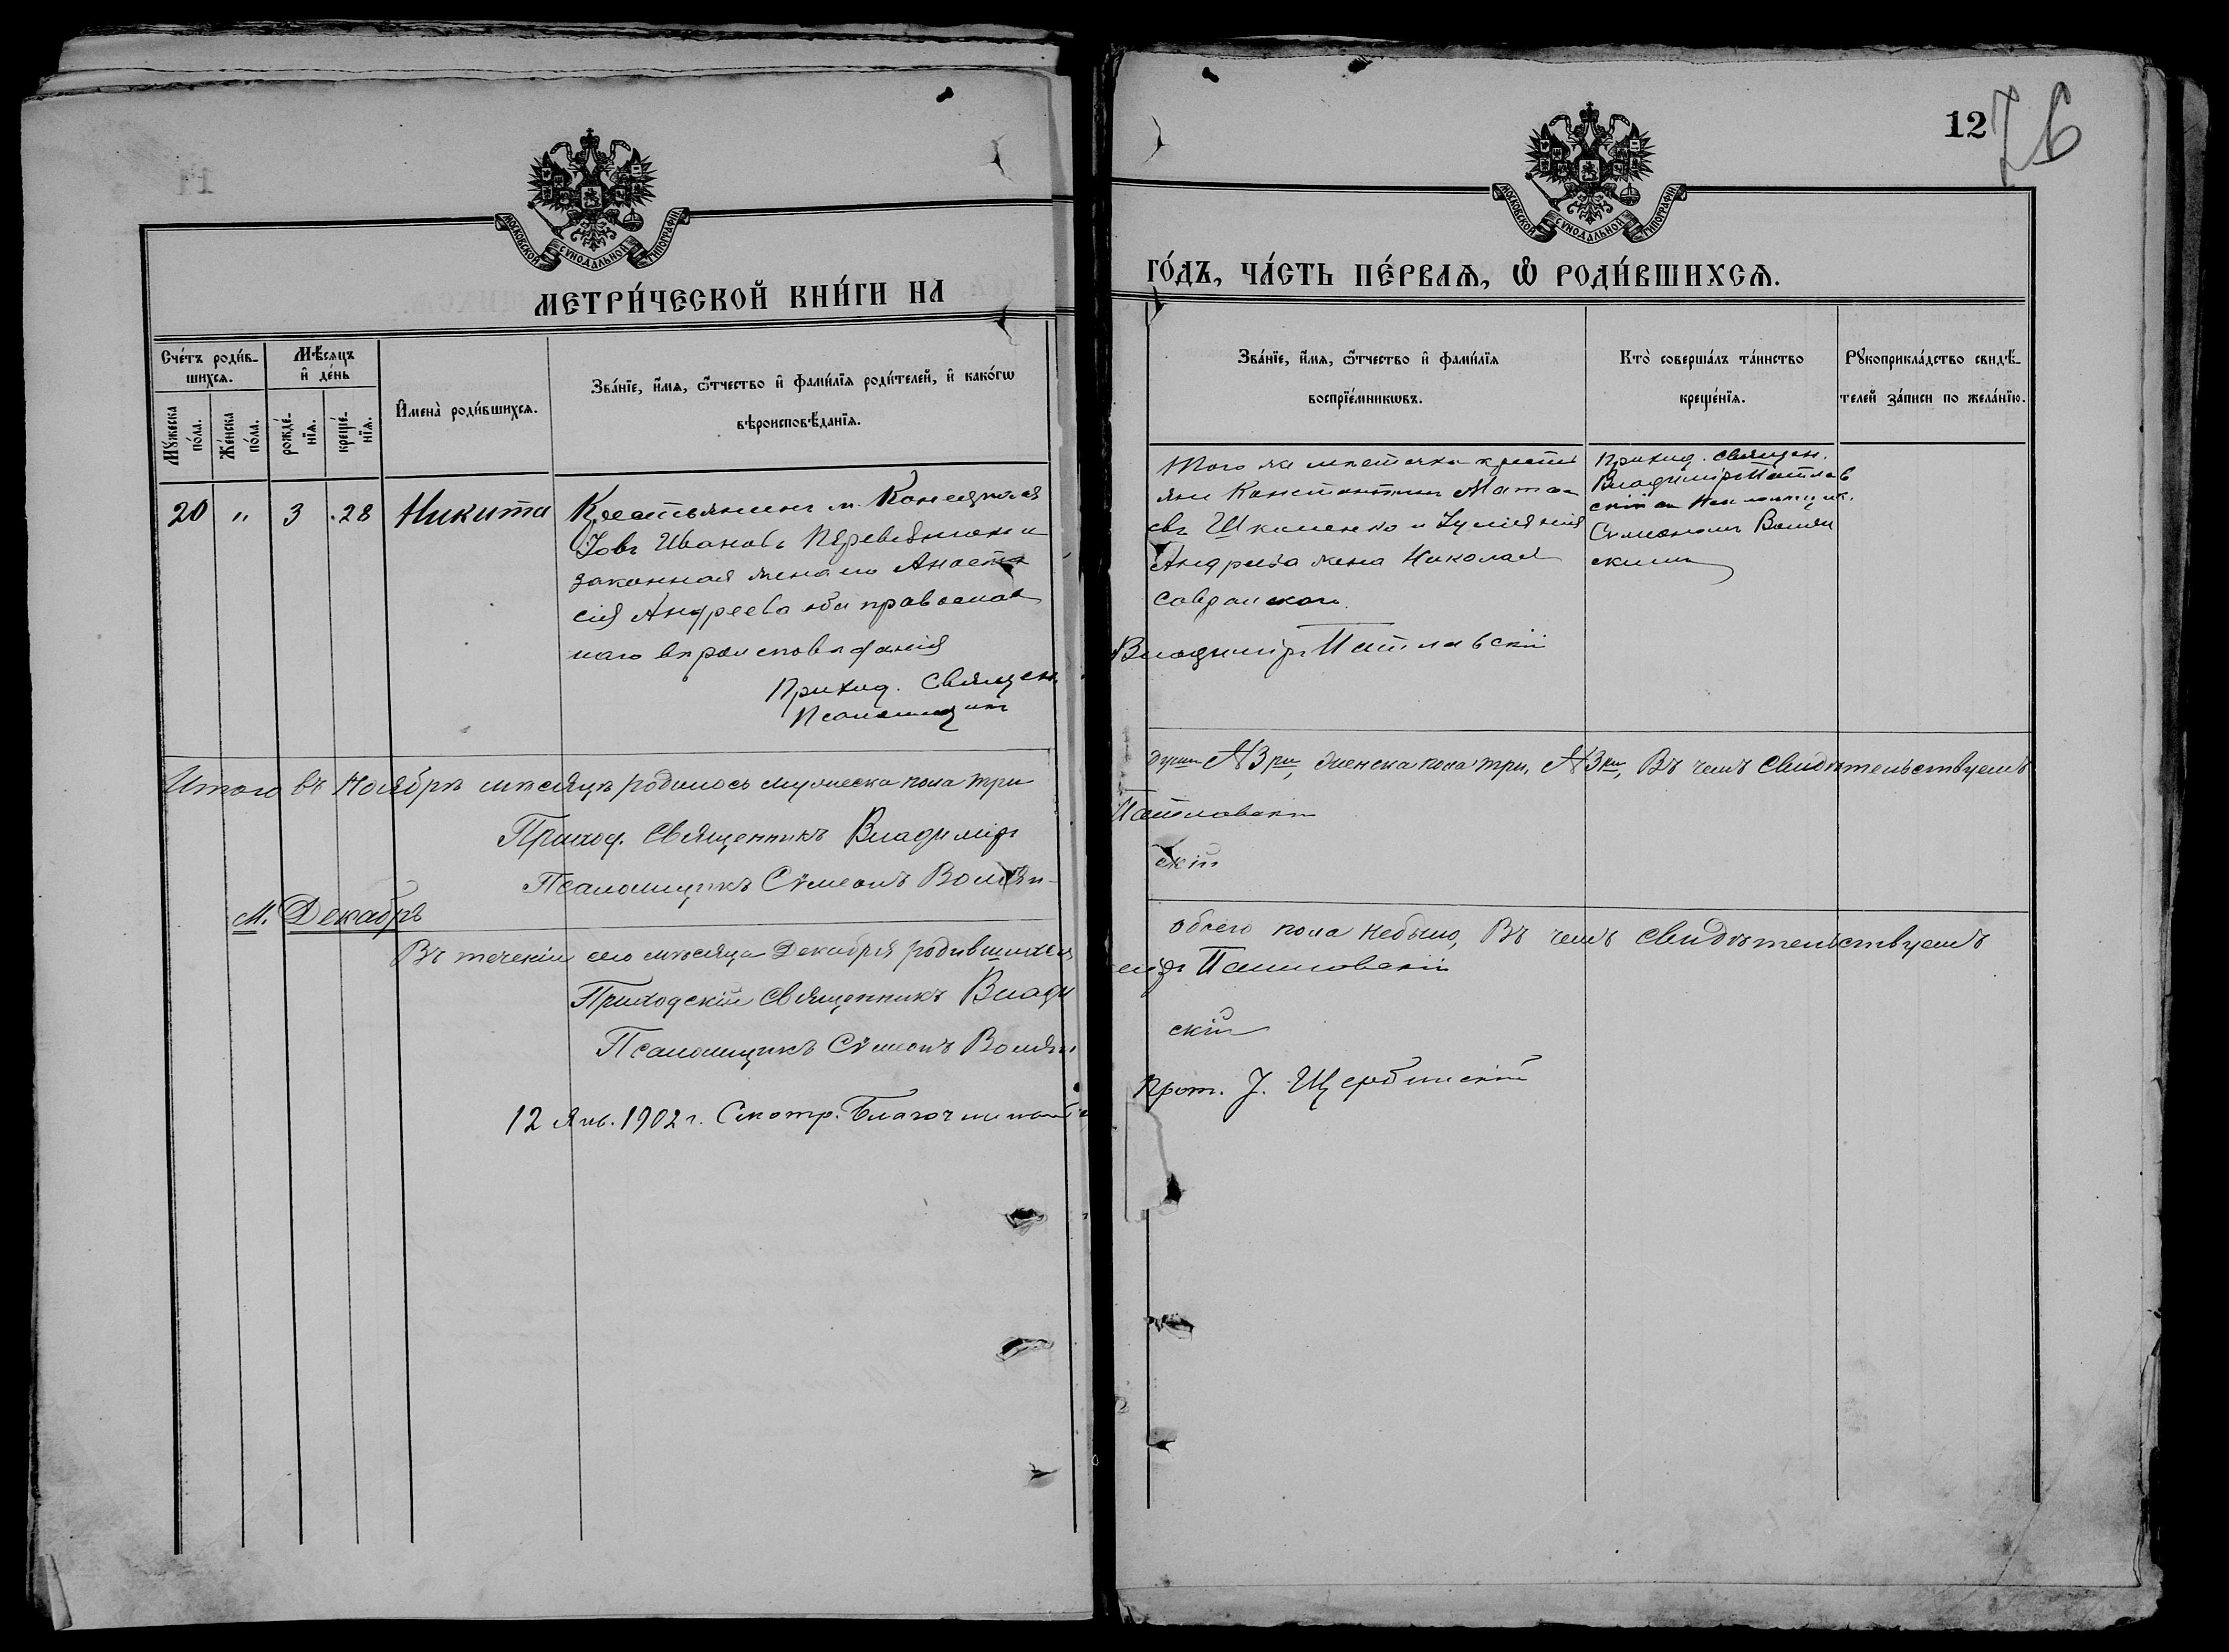 12
76
МОСКОВСКОЙ СѴНОДАЛЬНОЙ ТИПОГРАФІИ
МЕТРИ́ЧЕСКОЙ КНИ́ГИ НА
Сче́тъ роди́в-
шихсѧ.
Мѣ́сѧцъ
и҆ де́нь
Мꙋ́жеска
по́ла.
Же́нска
по́ла.
рожде́-
нїѧ.
креще́-
нїѧ.
И҆мена̀ роди́вшихсѧ.
Зва́нїе, и҆́мѧ, ѻ҆́тчество и҆ фами́лїѧ роди́телей, и҆ како́гѡ
вѣроисповѣ́данїѧ.
20 " 3 28 Никита
Крестьянинъ м.
Іовъ Ивановъ и
законная жена его Анаста
сія Андреева оба православ
наго вѣроисповѣданія
Приход. Священ.
Псаломщикъ
Итого въ Ноябрѣ мѣсяцѣ родилось мужеска пола три
Приход. Священникъ Владиміръ
Псаломщикъ Сѵмеонъ Волян-
М. Декабрь
Въ теченіи сего мѣсяца Декабря родившихся
Приходскій Священникъ Влади
Псаломщикъ Сѵмеонъ Волян
12 Янв. 1902 г. Смотр. Благочинный
МОСКОВСКОЙ СѴНОДАЛЬНОЙ ТИПОГРАФІИ
ГО́ДЪ, ЧА́СТЬ ПЕ́РВАѦ, Ѡ҆ РОДИ́ВШИХСѦ.
Зва́нїе, и҆́мѧ, ѻ҆́тчество и҆ фами́лїѧ
воспрїе́мникѡвъ.
Кто̀ соверша́лъ та́инство
креще́нїѧ.
Рꙋкоприкла́дство свидѣ́-
телей за́писи по жела́нїю.
Того же мѣстечка крестья
яне Константинъ
евъ Шкиленко и
Андреева жена Николая
Савранскаго
Владиміръ
Приход. Священ.
Владиміръ
скій съ Псаломщик.
Сѵмеономъ Волян
скимъ
душъ №3ри, женска пола три, №3ри, Въ чемъ свидѣтельствуемъ
скій
обоего пола небыло, Въ чемъ свидѣтельствуемъ
міръ
скій
Прот. І. Щербинскій